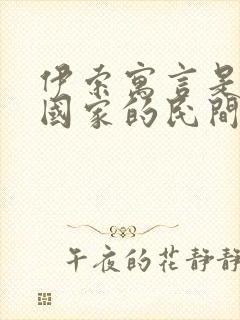 伊索寓言是
國家的民間
午夜的花靜靜